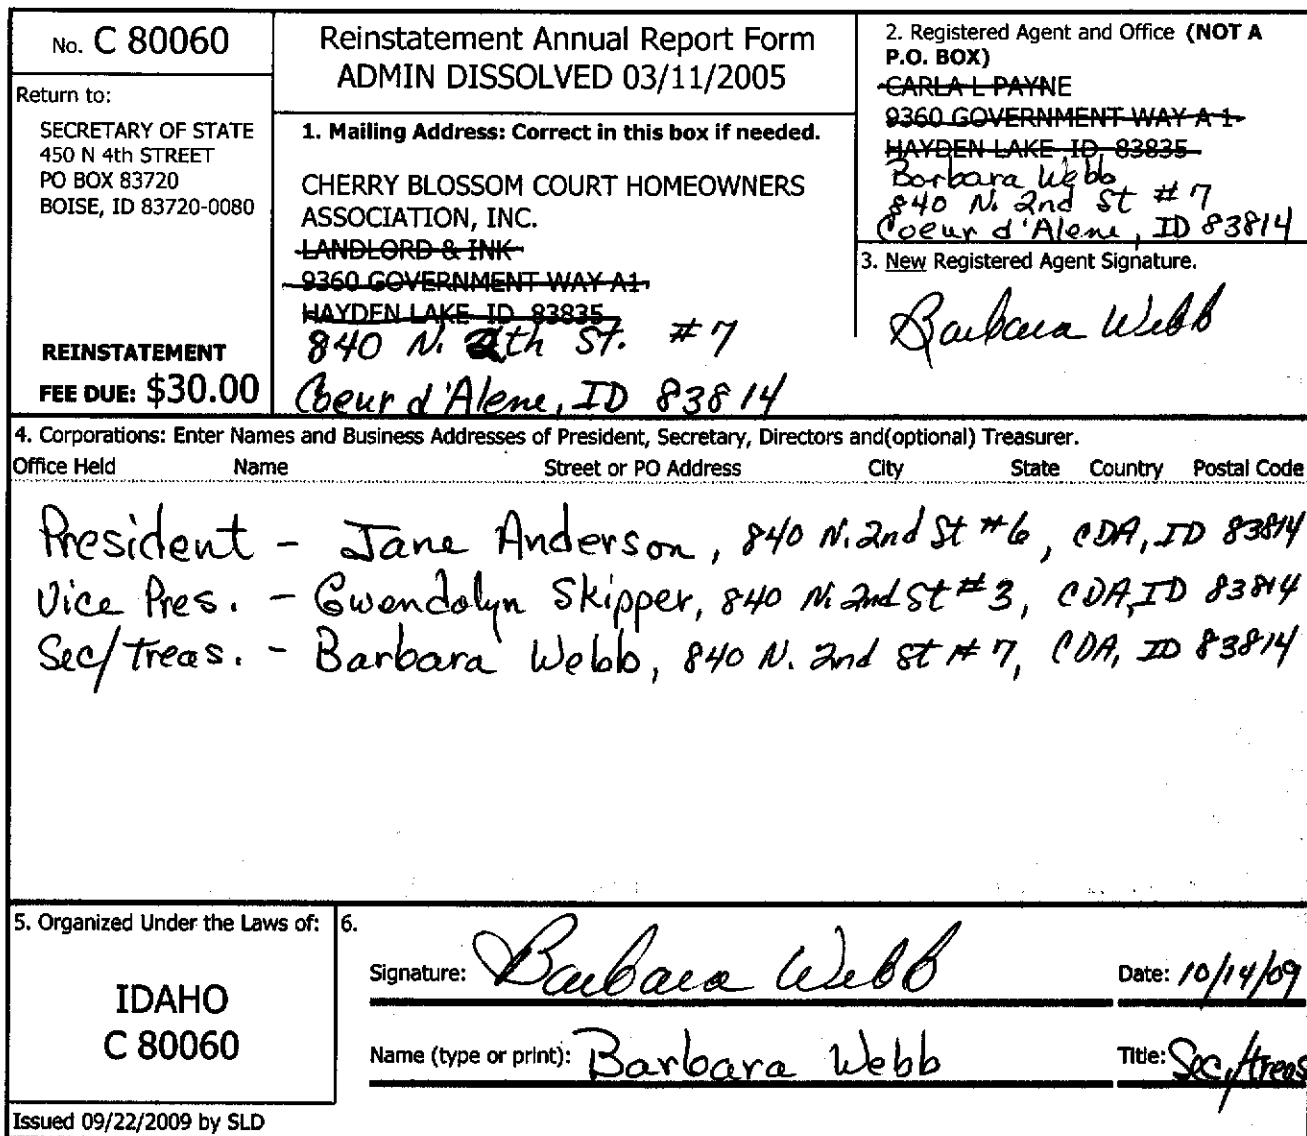 No. C 80060
Return to:
SECRETARY OF STATE
450 N 4th STREET
PO BOX 83720
BOISE, ID 83720-0080
REINSTATEMENT
FEE DUE: $30.00
Reinstatement Annual Report Form
ADMIN DISSOLVED 03/11/2005
1. Mailing Address: Correct in this box if needed.
CHERRY BLOSSOM COURT HOMEOWNERS
ASSOCIATION, INC.
LANDLORD & INK
9360 GOVERNMENT WAY A1
HAYDEN LAKE ID 83835
840 N. St. #7
Coeur d'Alene, ID 83814
2. Registered Agent and Office (NOT A
P.O. BOX)
CARLA L PAYNE
9360 GOVERNMENT WAY A 1
HAYDEN LAKE ID 83835
Barbara Webb
840 N. 2nd St #7
Coeur d'Alene, ID 83814
3. New Registered Agent Signature.
Barbara Webb
4. Corporations: Enter Names and Business Addresses of President, Secretary, Directors and(optional) Treasurer.
Office Held Name Street or PO Address City State Country Postal Code
President - Jane Anderson, 840 N. 2nd St #6, CDA, ID 83814
Vice Pres. - Gwendolyn Skipper, 840 N. 2nd St #3, CDA, ID 83814
Sec/treas. - Barbara Webb, 840 N. 2nd St #7, CDA, ID 83814
5. Organized Under the Laws of:
IDAHO
C 80060
6.
Signature: Barbara Webb Date: 10/14/09
Name (type or print): Barbara Webb Title: Sec/treas
Issued 09/22/2009 by SLD